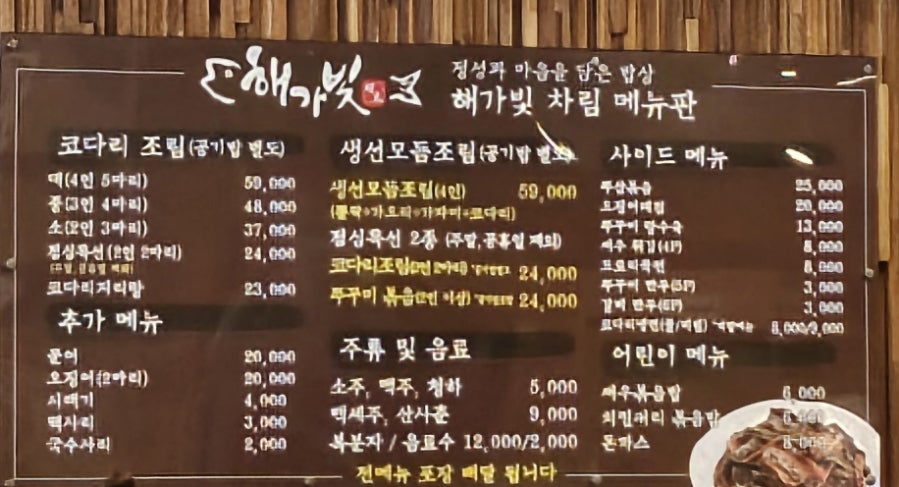 해가빛
정성과 마음을 담은 밥상
해가빛 차림 메뉴판
코다리 조림(공기밥 별도)
대(4인 5마리) 59,000
중(3인 4마리) 48,000
소(2인 3마리) 37,000
점심특선(2인 2마리) 24,000
코다리지리탕 23,000
추가 메뉴
문어 20,000
오징어(2마리) 20,000
시래기 4,000
떡사리 3,000
국수사리 2,000
생선모듬조림(공기밥 별도)
생선모듬조림(4인) 59,000
가오리+가자미+코다리)
점심특선 2종 (주말,공휴일 제외)
코다리조림(2인 2마리) 24,000
쭈꾸미 볶음(2인 이상) 24,000
주류 및 음료
소주, 맥주, 청하 5,000
백세주, 산사춘 9,000
복분자 / 음료수 12,000/2,000
전메뉴 포장 배달 됩니다
사이드 메뉴
25,000
20,000
쭈꾸미 탕수육 13,000
새우 튀김(4P) 8,000
도토리묵전 8,000
쭈꾸미 만두(5P) 3,000
갈비 만두(6P) 3,000
코다리냉면(물/비빔) 8,000/9,000
어린이 메뉴
새우볶음밥 6,000
치킨데리 볶음밥
돈까스